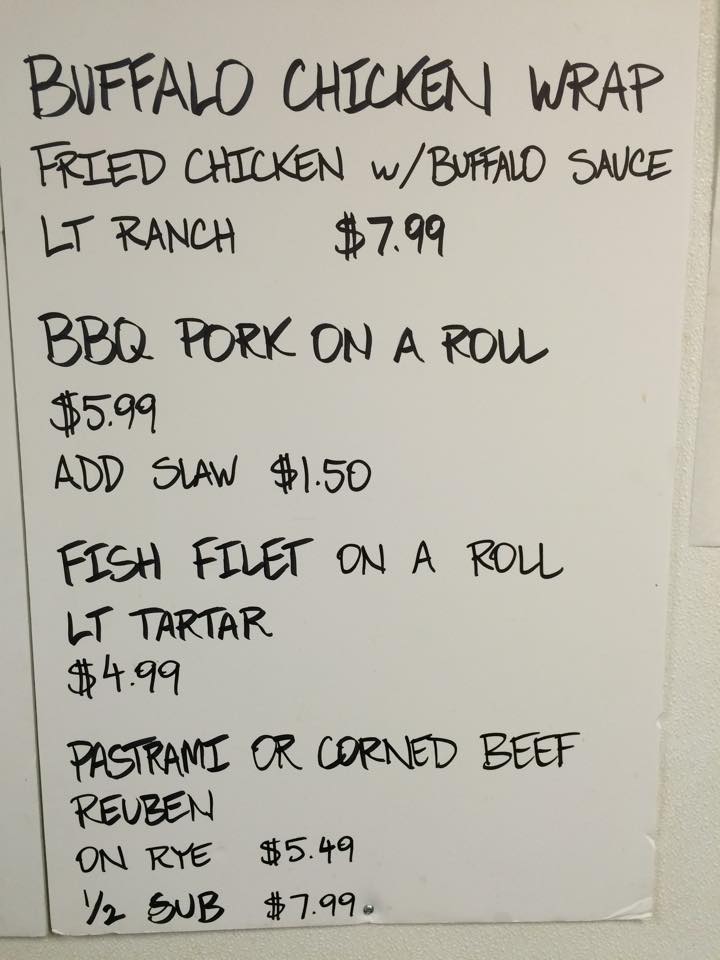 BUFFALO CHICKEN WRAP
FRIED CHICKEN w/BUFFALO SAUCE
LT RANCH $7.99
BBQ PORK ON A ROLL
$5.99
ADD SLAW $1.50
FISH FILET ON A ROLL
LT TARTAR
$4.99
PASTRAMI OR CORNED BEEF
REUBEN
ON RYE $5.49
1/2 SUB $7.99